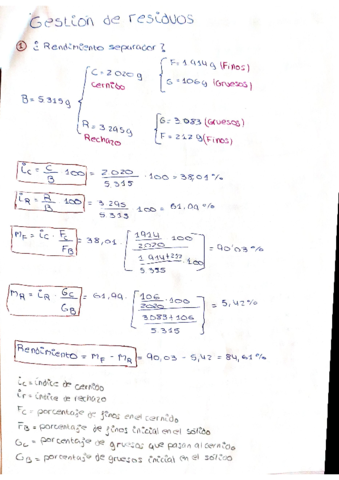 Gestion de residuos
① ¿Rendimiento separador?
B = 5315g
C = 2020g
Cernido
F = 1914g (Finos)
G = 106g (Gruesos)
R = 3295g
Rechazo
G = 3083 (Gruesos)
F = 212g (Finos)
ic = C/B · 100 = 2.020/5.315 · 100 = 38,01 %
iR = R/B · 100 = 3.295/5.315 · 100 = 61,99 %
MF = ic · Fc/FB = 38,01 · [ (1914/2020 · 100) / ((1914+212)/5315 · 100) ] = 90'03 %
MR = iR · Gc/GB = 61,99 · [ (106/2020 · 100) / ((3083+106)/5315) ] = 5,42 %
Rendimiento = MF - MR = 90,03 - 5,42 = 84,61 %
ic = indice de cernido
ir = indice de rechazo
Fc = porcentaje de finos en el cernido
FB = porcentaje de finos inicial en el sólido
Gc = porcentaje de gruesos que pasan al cernido
GB = porcentaje de gruesos inicial en el sólido